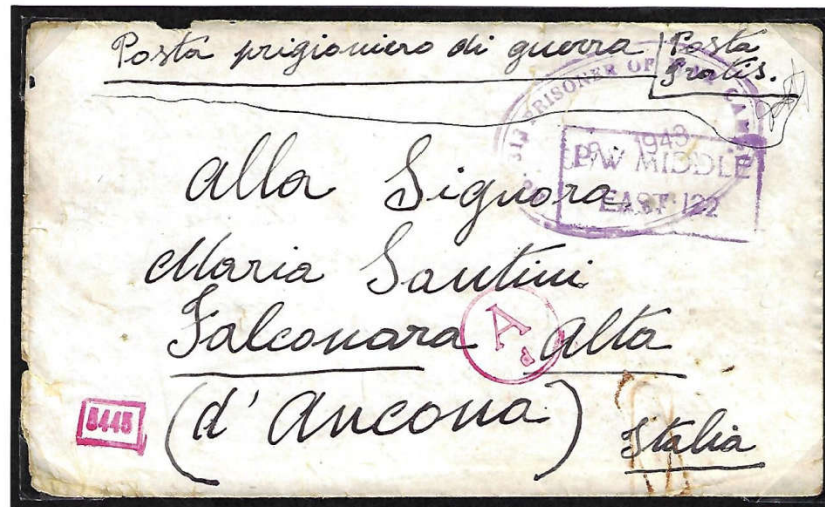 Posta prigioniero di guerra Posta
gratis.
313 PRISONER OF
1943
P/W MIDDLE
EAST 122
Alla Signora
Maria Santini
Falconara Alta
A
d
(d' Ancona)
8445
Italia